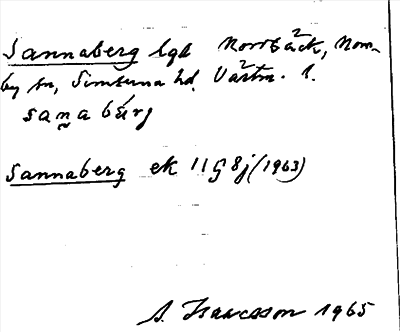 Sannaberg lgh Norrbäck, Norr-
by sn, Simtuna hd, Västm. l.
sanabärj
Sannaberg ek 11G8j (1963)
S. Isaacsson 1965